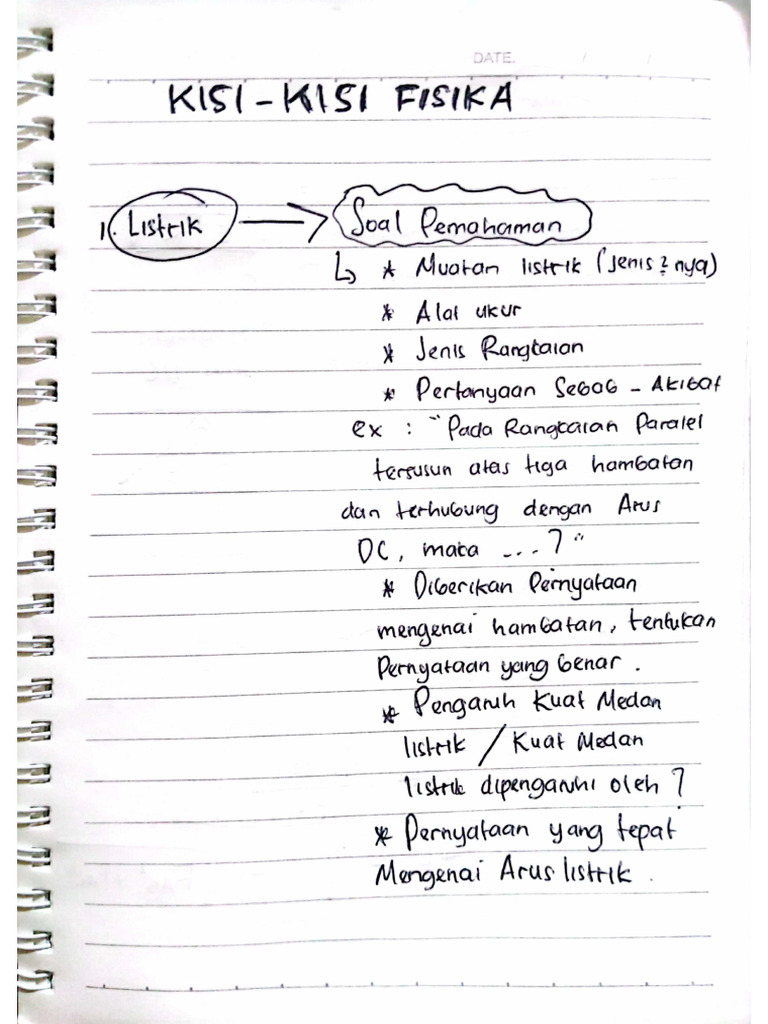 DATE. / /
KISI - KISI FISIKA
1. Listrik → Soal Pemahaman
↳ * Muatan listrik (jenis2nya)
* Alat ukur
* Jenis Rangkaian
* Pertanyaan Sebab - Akibat
ex : "Pada Rangkaian Paralel
tersusun atas tiga hambatan
dan terhubung dengan Arus
DC, maka ...?"
* Diberikan Pernyataan
mengenai hambatan, tentukan
Pernyataan yang benar.
* Pengaruh Kuat Medan
listrik / Kuat Medan
listrik dipengaruhi oleh?
* Pernyataan yang tepat
Mengenai Arus listrik.